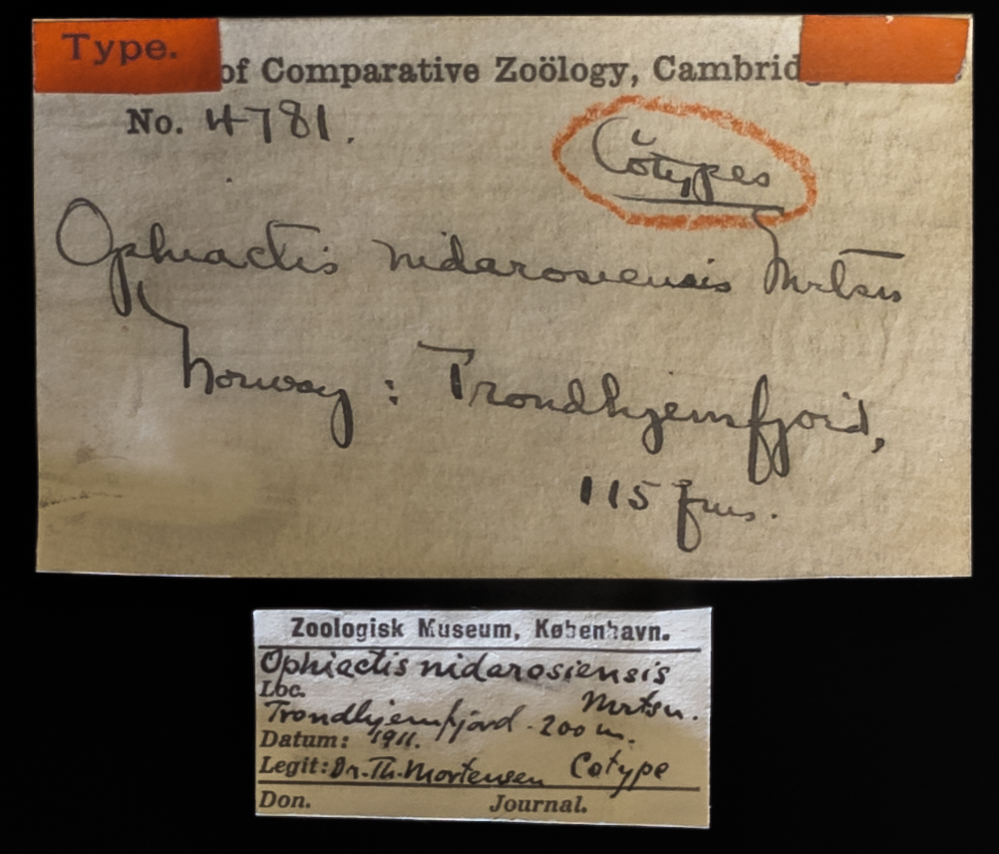 Type.
of Comparative Zoölogy, Cambrid
No. 4781.
Cotypes
Ophiactis nidarosiensis Mrtsn
Norway: Trondhjemfjord,
115 fms.
Zoologisk Museum, København.
Ophiactis nidarosiensis
Loc. Mrtsn.
Trondhjemfjord - 200 m.
Datum: 1911.
Legit: Dr. Th. Mortensen Cotype
Don. Journal.